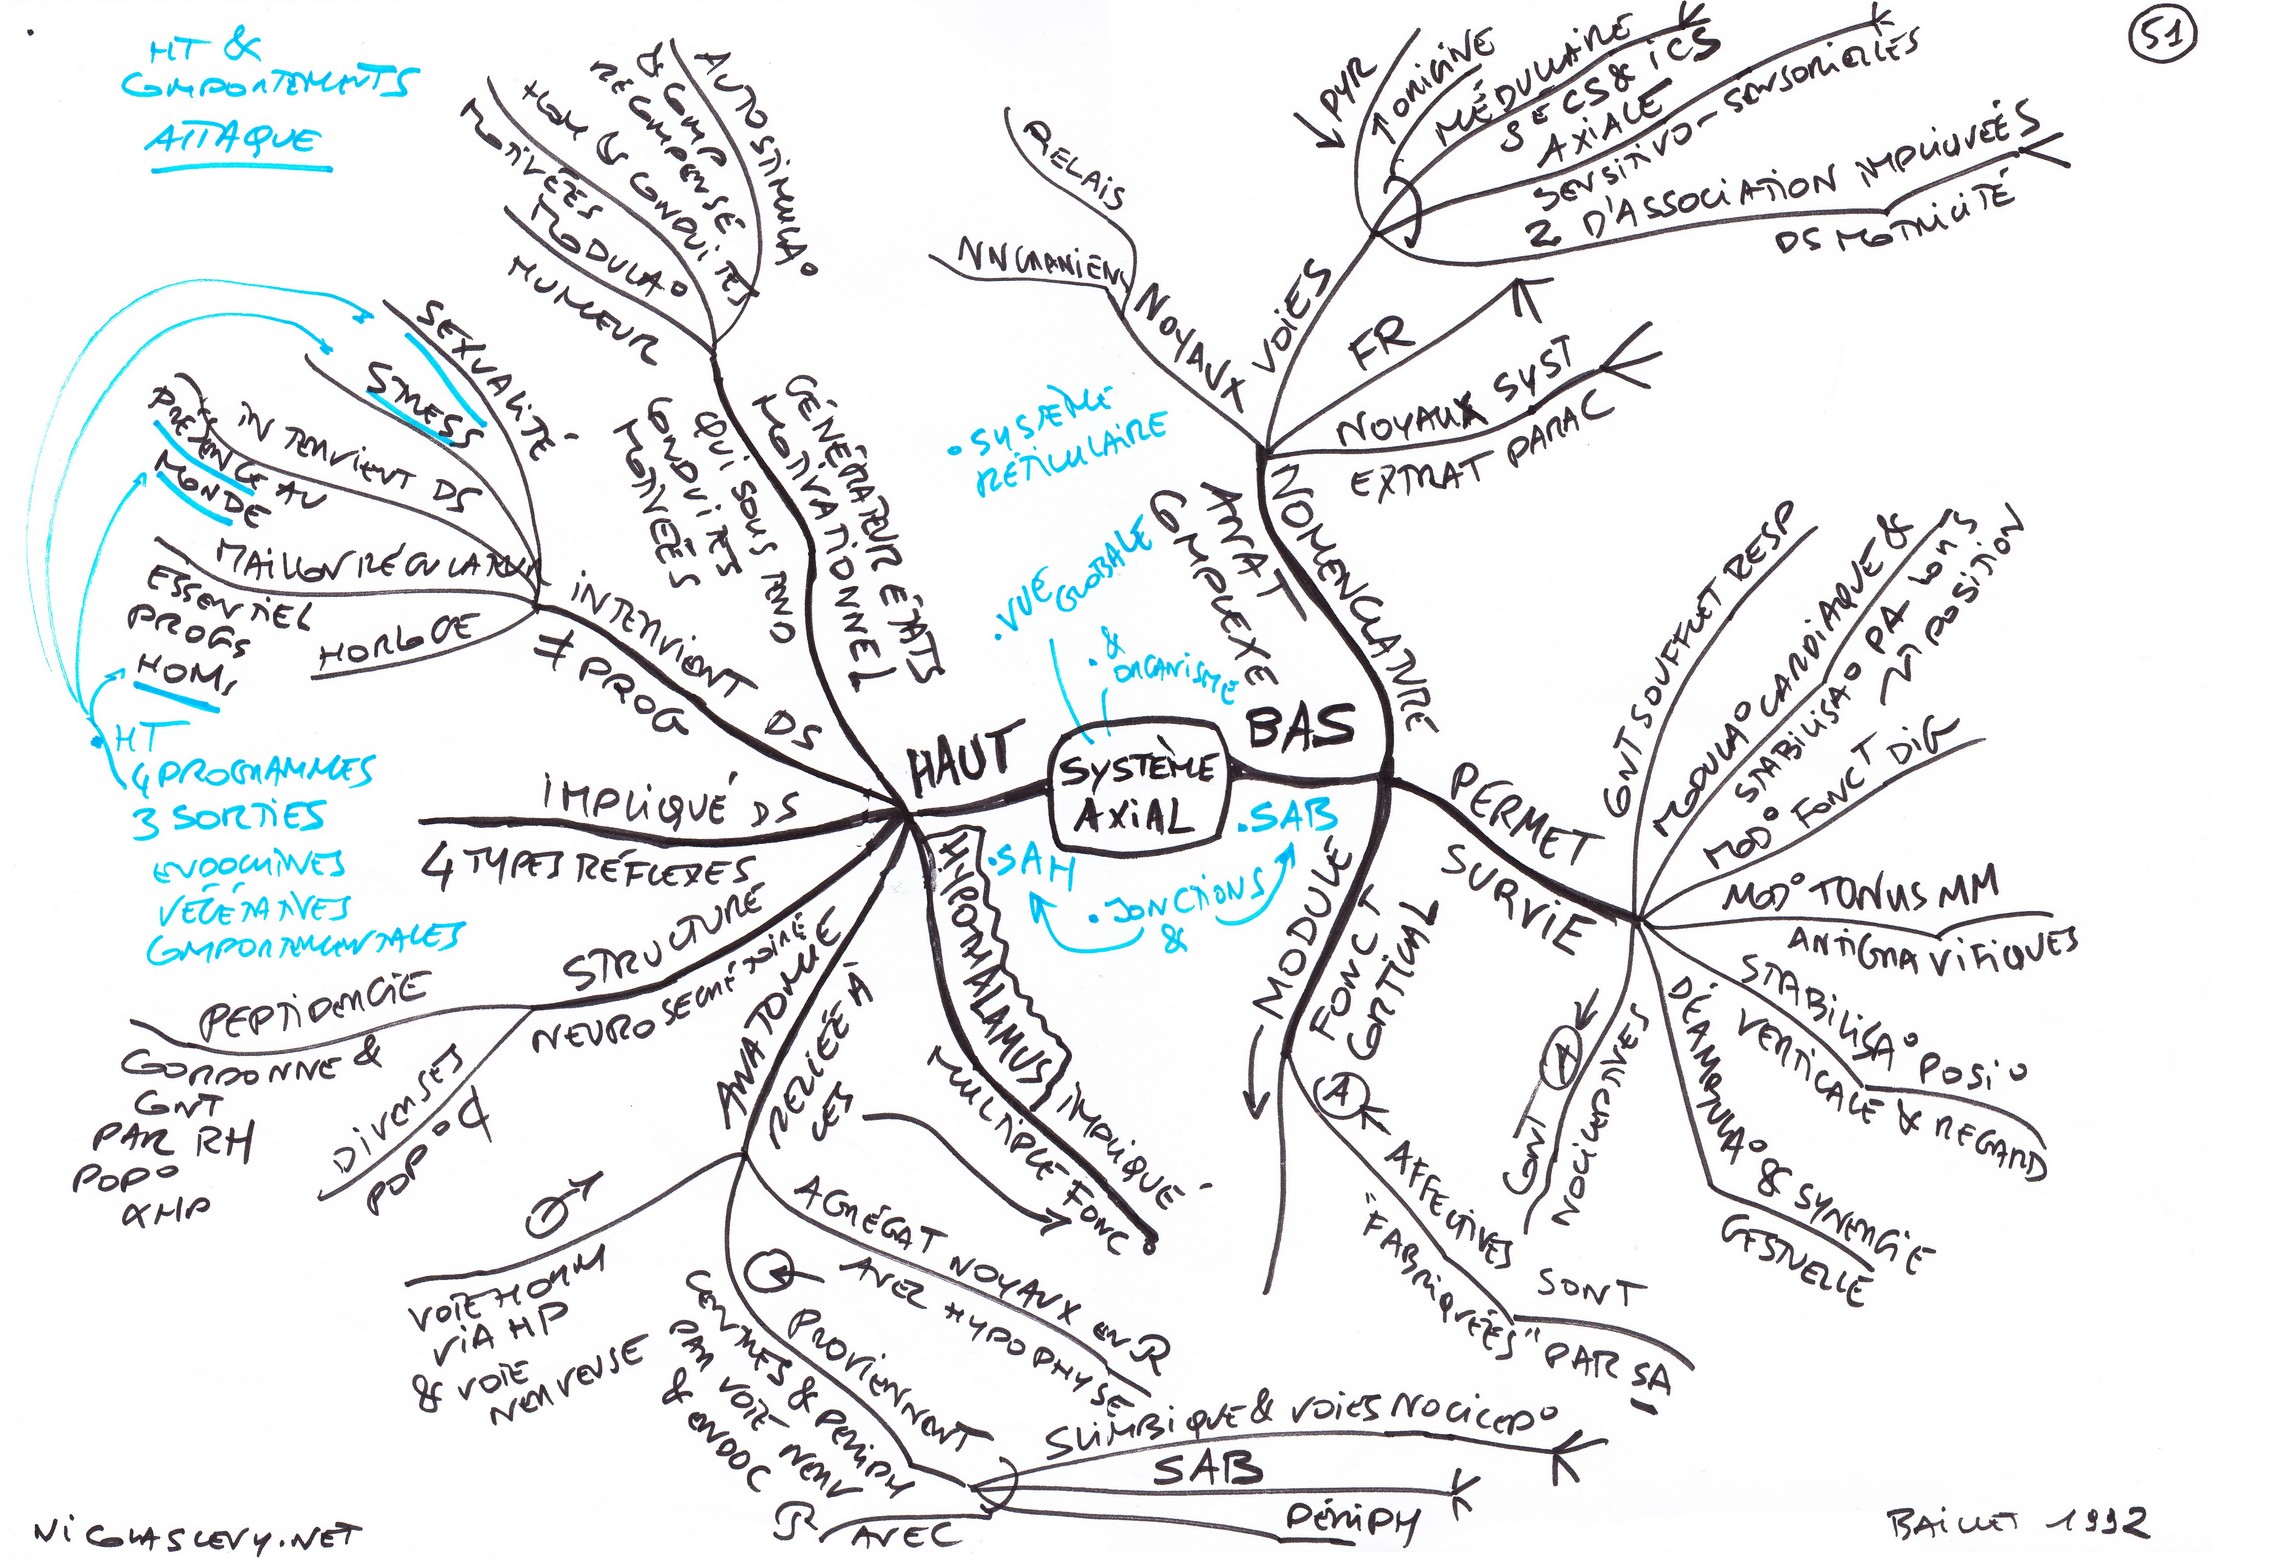 51
HT &
COMPORTEMENTS
ATTAQUE
AUTOSTIMULA°
& COMP
RÉCOMPENSE
HOM & CONDUITES
MOTIVÉES
MODULA°
HUMEUR
GÉNÉRATEUR ÉTATS
MOTIVATIONNEL
QUI SOUS TEND
CONDUITES
MOTIVÉES
SEXUALITÉ
STRESS
INTERVIENT DS
PRÉSENCE AU
MONDE
MAILLON RÉGULATION
ESSENTIEL
PROGS
HOMS
HORLOGE
INTERVIENT DS
≠ PROG
HT
4 PROGRAMMES
3 SORTIES
ENDOCRINES
VÉGÉTATIVES
COMPORTEMENTALES
IMPLIQUÉ DS
4 TYPES RÉFLEXES
STRUCTURÉ
NEUROSECRÉTOIRE
PEPTIDERGIE
CORDONNE &
CONT
PAR RH
POP°
AHP
DIVERSES
POP°
ANATOMIE
RELIÉE À
CES
VOIE HORM
VIA HP
& VOIE
NERVEUSE
AGRÉGAT NOYAUX EN R
AVEC HYPOPHYSE
PROVIENNENT
CENTRES & PERIPH
PAR VOIE NERV
& ENDOC
R AVEC
SLIMBIQUE & VOIES NOCICEP°
SAB
PÉRIPH
HYPOTHALAMUS
IMPLIQUÉ
MULTIPLE FONC°
HAUT
SYSTÈME
AXIAL
BAS
• SYSTÈME
RÉTICULAIRE
• VUE
GLOBALE
• &
ORGANISME
• SAH
• SAB
• JONCTIONS
&
NOMENCLATURE
ANAT
COMPLEXE
NOYAUX
RELAIS
NN CRANIENS
VOIES
↓ PYR
↑ ORIGINE
MÉDULLAIRE
S E CS & ICS
AXIALE
SENSITIVO-SENSORIELLES
2 D'ASSOCIATION IMPLIQUÉES
DS MOTRICITÉ
FR
NOYAUX SYST
EXTRAT PARAC
PERMET
SURVIE
CONT SOUFFLET RESP
MODULA° CARDIAQUE &
STABILISA° PA LORS
POSITION
MOD° FONCT DIG
MOD° TONUS MM
ANTIGRAVIFIQUES
STABILISA° POSI°
VERTICALE & REGARD
DÉAMBULA° & SYNERGIE
GESTUELLE
CONT A
NOCICEPTIVES
MODULE
FONCT
CORTICAL
A
AFFECTIVES SONT
"FABRIQUÉES" PAR SA
NICOLASLEVY.NET
BAILLET 1992